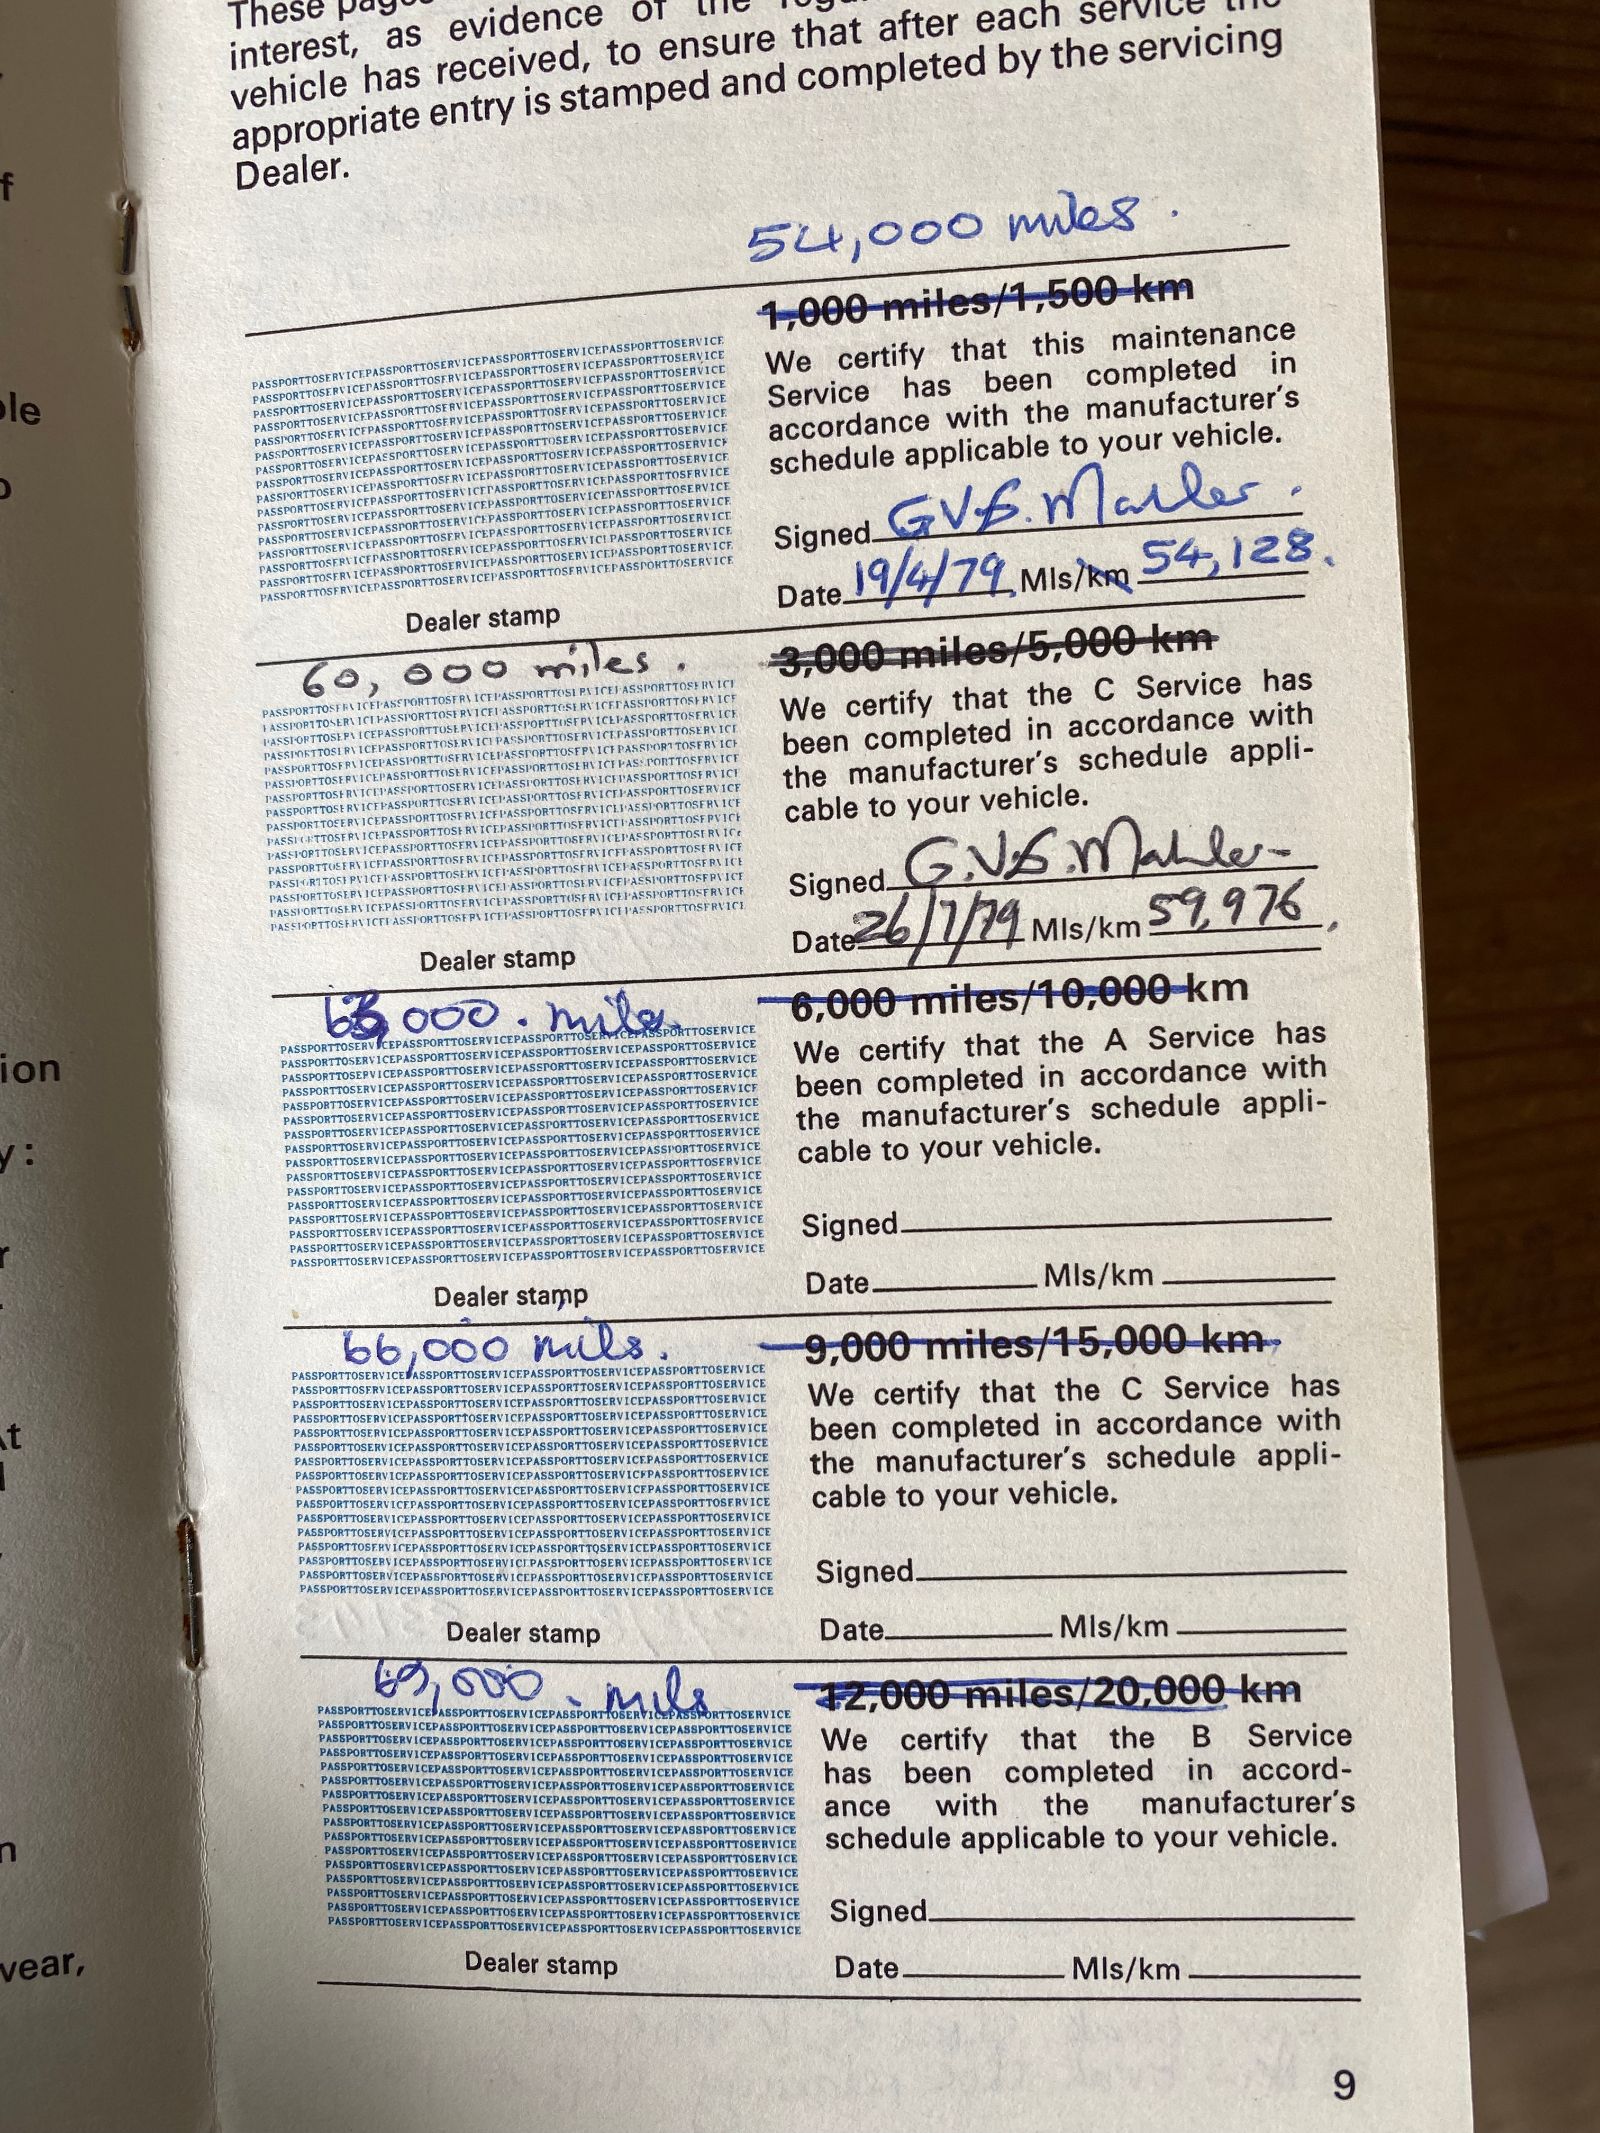 These
interest, as evidence of the
vehicle has received, to ensure that after each service the
appropriate entry is stamped and completed by the servicing
Dealer.
54,000 miles.
1,000 miles/1,500 km
We certify that this maintenance
Service has been completed in
accordance with the manufacturer's
schedule applicable to your vehicle.
Signed
Date 19/4/79. Mls/km 54,128.
PASSPORTTOSERVICEPASSPORTTOSERVICEPASSPORTTOSERVICEPASSPORTTOSERVICE
Dealer stamp
60,000 miles.
3,000 miles/5,000 km
We certify that the C Service has
been completed in accordance with
the manufacturer's schedule appli-
cable to your vehicle.
Signed G.V.S. Mahler
Date 26/7/79 Mls/km 59,976.
Dealer stamp
63,000. miles
6,000 miles/10,000 km
We certify that the A Service has
been completed in accordance with
the manufacturer's schedule appli-
cable to your vehicle.
Signed
Date Mls/km
Dealer stamp
66,000 mils.
9,000 miles/15,000 km
We certify that the C Service has
been completed in accordance with
the manufacturer's schedule appli-
cable to your vehicle.
Signed
Date Mls/km
Dealer stamp
69,000. mils
12,000 miles/20,000 km
We certify that the B Service
has been completed in accord-
ance with the manufacturer's
schedule applicable to your vehicle.
Signed
Date Mls/km
Dealer stamp
9